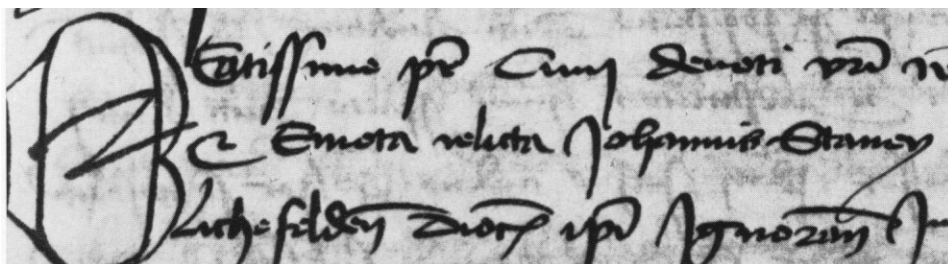 Beatissime pr Cum devoti vri
Emota relicta Johannis Staney
lichefelden dioc ipi Ignoran